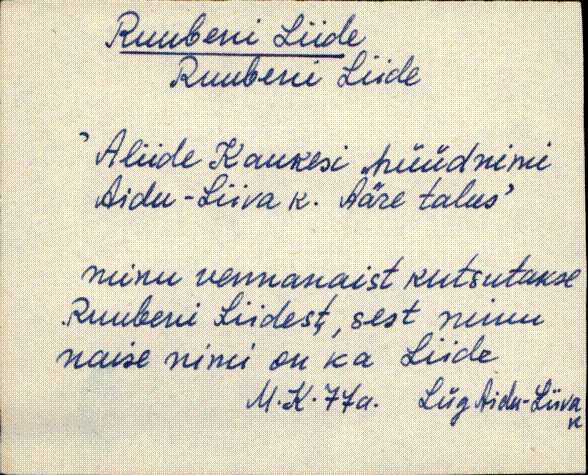 Ruubeni Liide
Ruubeni Liide
'Aliide Kaukesi hüüdnimi
Aidu-Liiva k. Ääre talus'
minu vennanaist kutsutakse
Ruubeni Liidest, sest minu
naise nimi on ka Liide
M.K. 77a. Lüg Aidu-Liiva
k